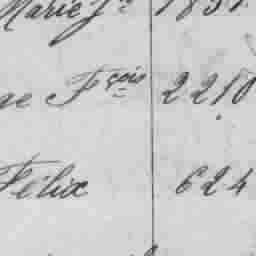 Marie Jᵉ 1831
ae Fçois 2210
Félix 624